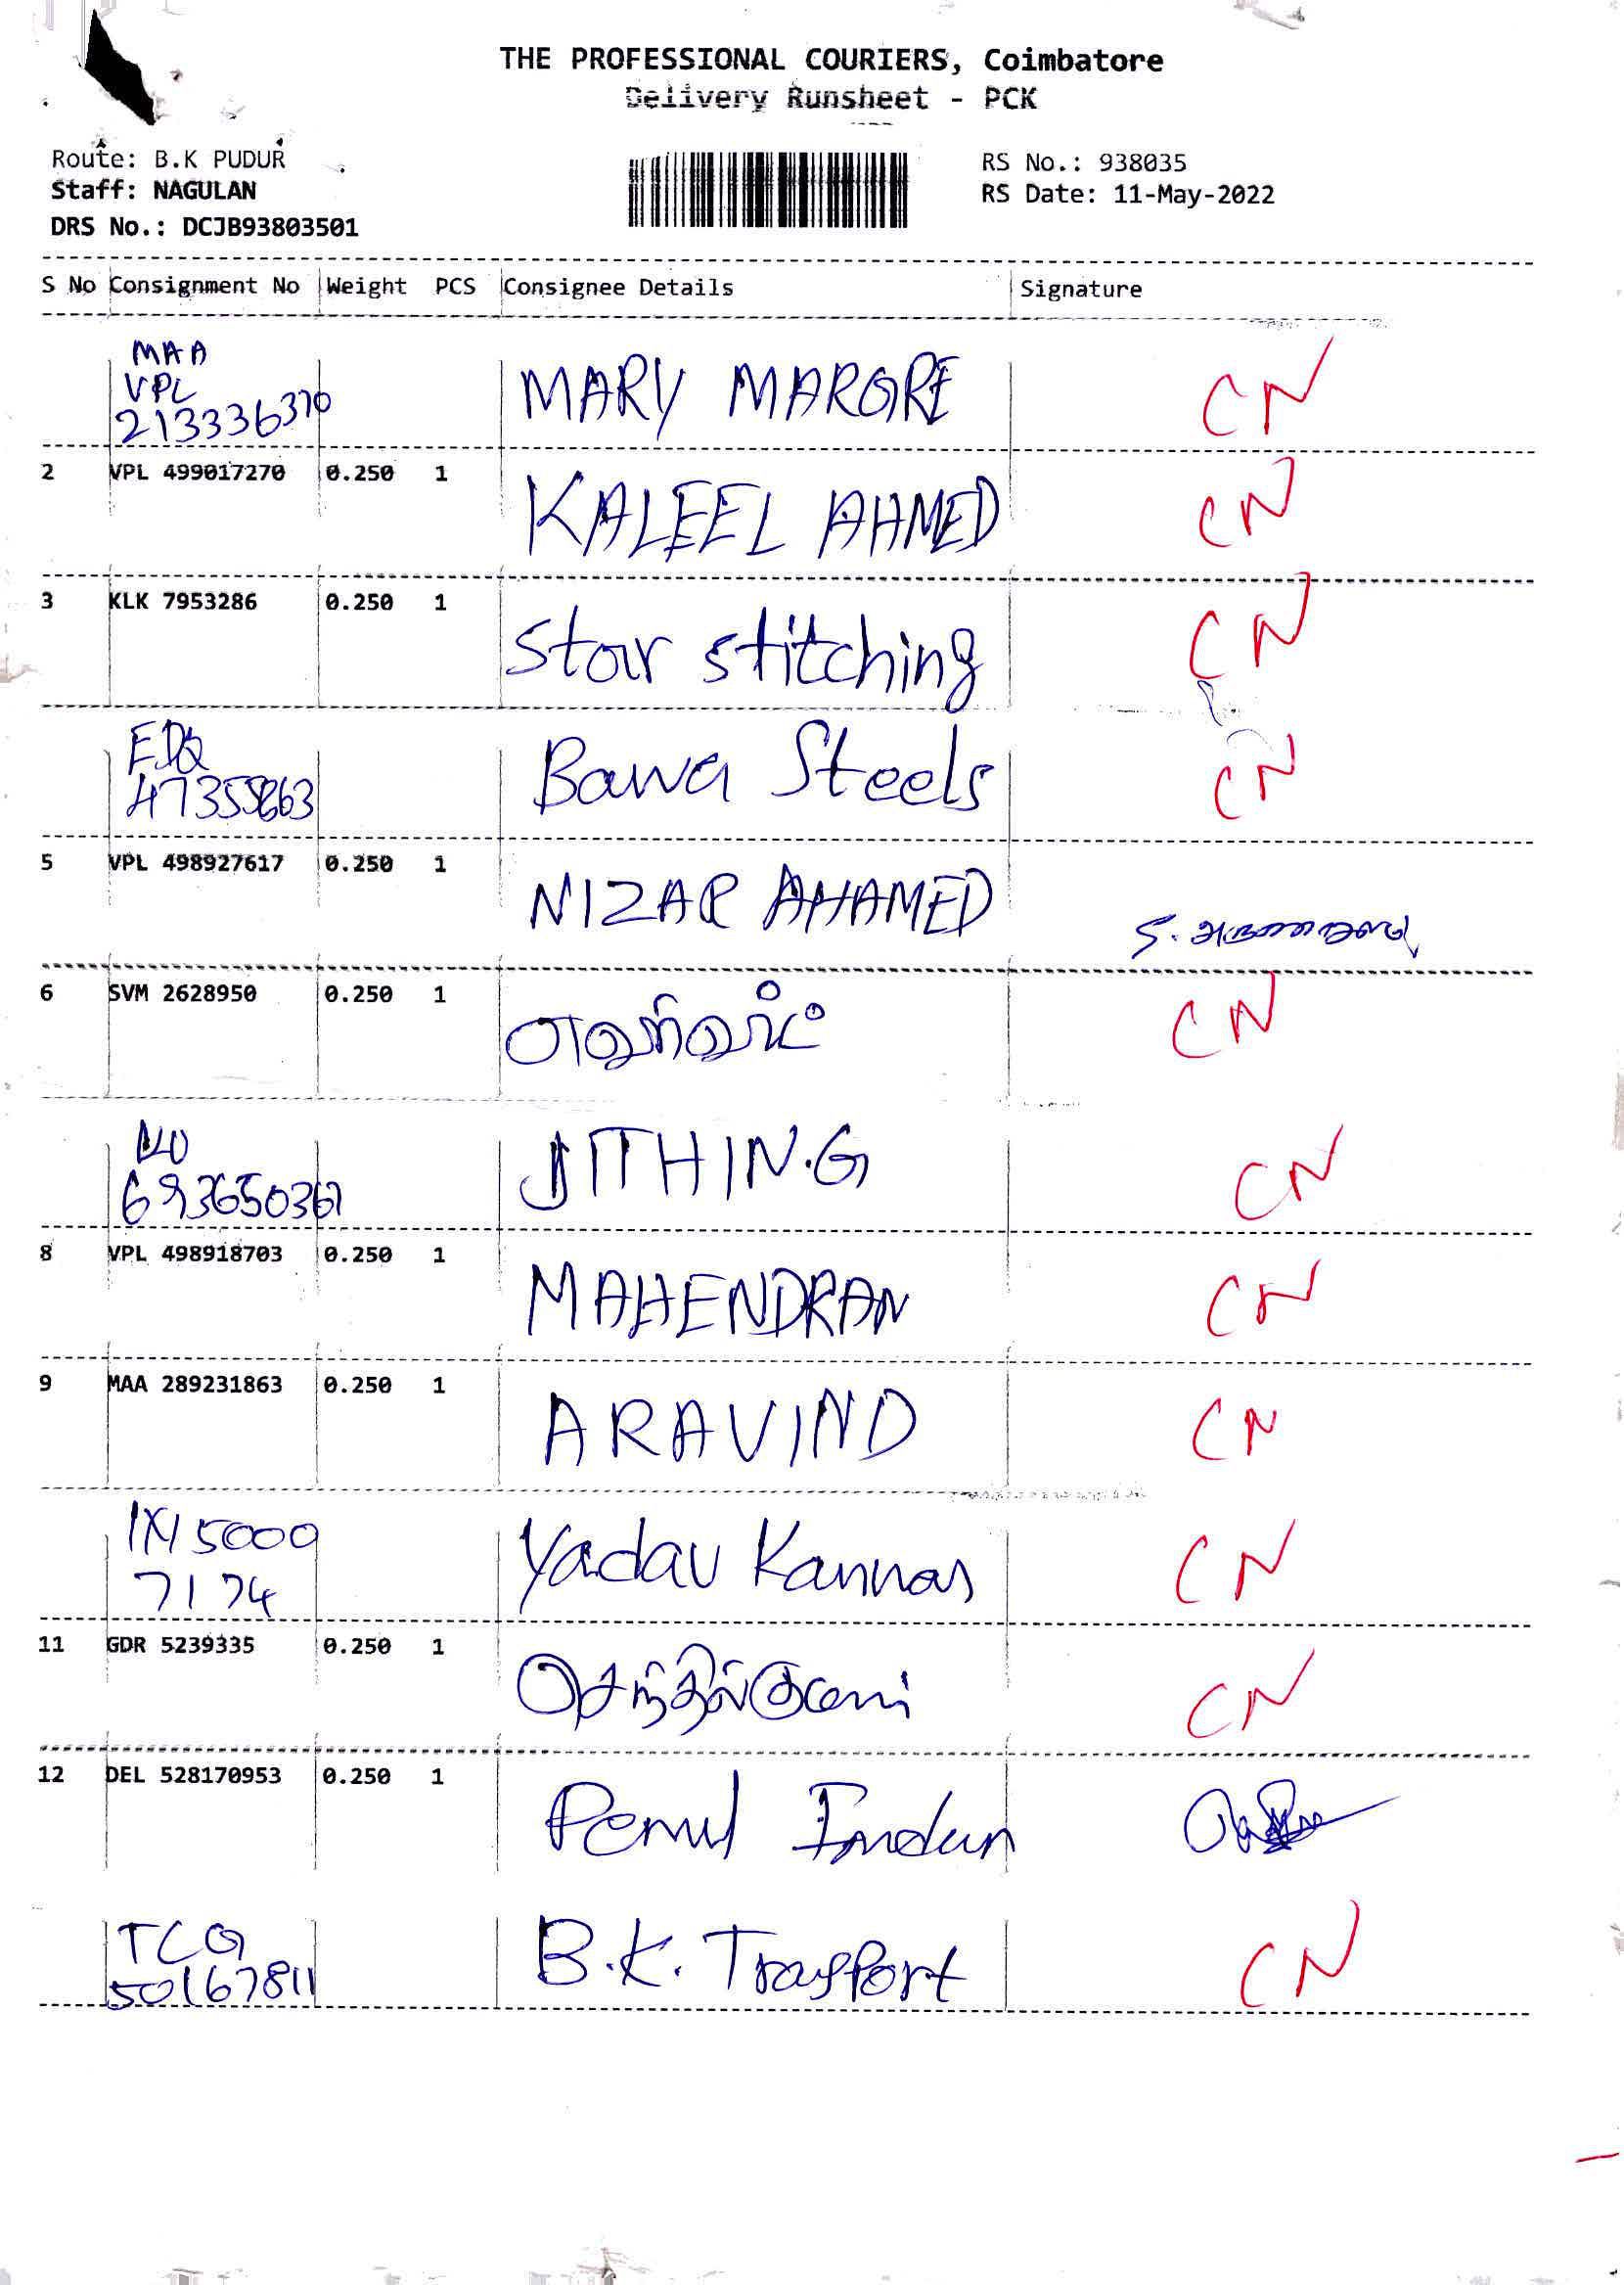 THE PROFESSIONAL COURIERS, Coimbatore
Delivery Runsheet - PCK
Route: B.K PUDUR
RS No.: 938035
Staff: NAGULAN
RS Date: 11-May-2022
DRS No.: DCJB93803501
S No Consignment No Weight PCS Consignee Details Signature
MAA
VPL
213336370 MARY MARGRE CN
2 VPL 499017270 0.250 1
KALEEL AHMED CN
3 KLK 7953286 0.250 1
Star stitching CN
EDQ
47355863 Bawa Steels CN
5 VPL 498927617 0.250 1
NIZAR AHAMED
6 SVM 2628950 0.250 1
CN
693650361 JITHIN.G CN
8 VPL 498918703 0.250 1
MAHENDRAN CN
9 MAA 289231863 0.250 1
ARAVIND CN
5000
7174 Yadav Kannan CN
11 GDR 5239335 0.250 1
செந்தில்குமார் CN
12 DEL 528170953 0.250 1
TCG
50167811 B.K. Trasport CN